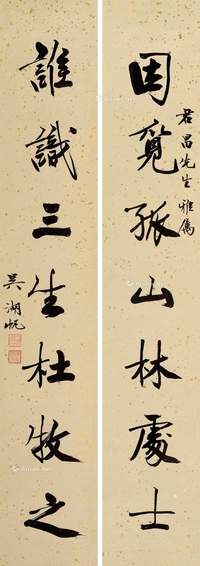 因覓孤山林處士
君昌先生雅屬
誰識三生杜牧之
吳湖帆